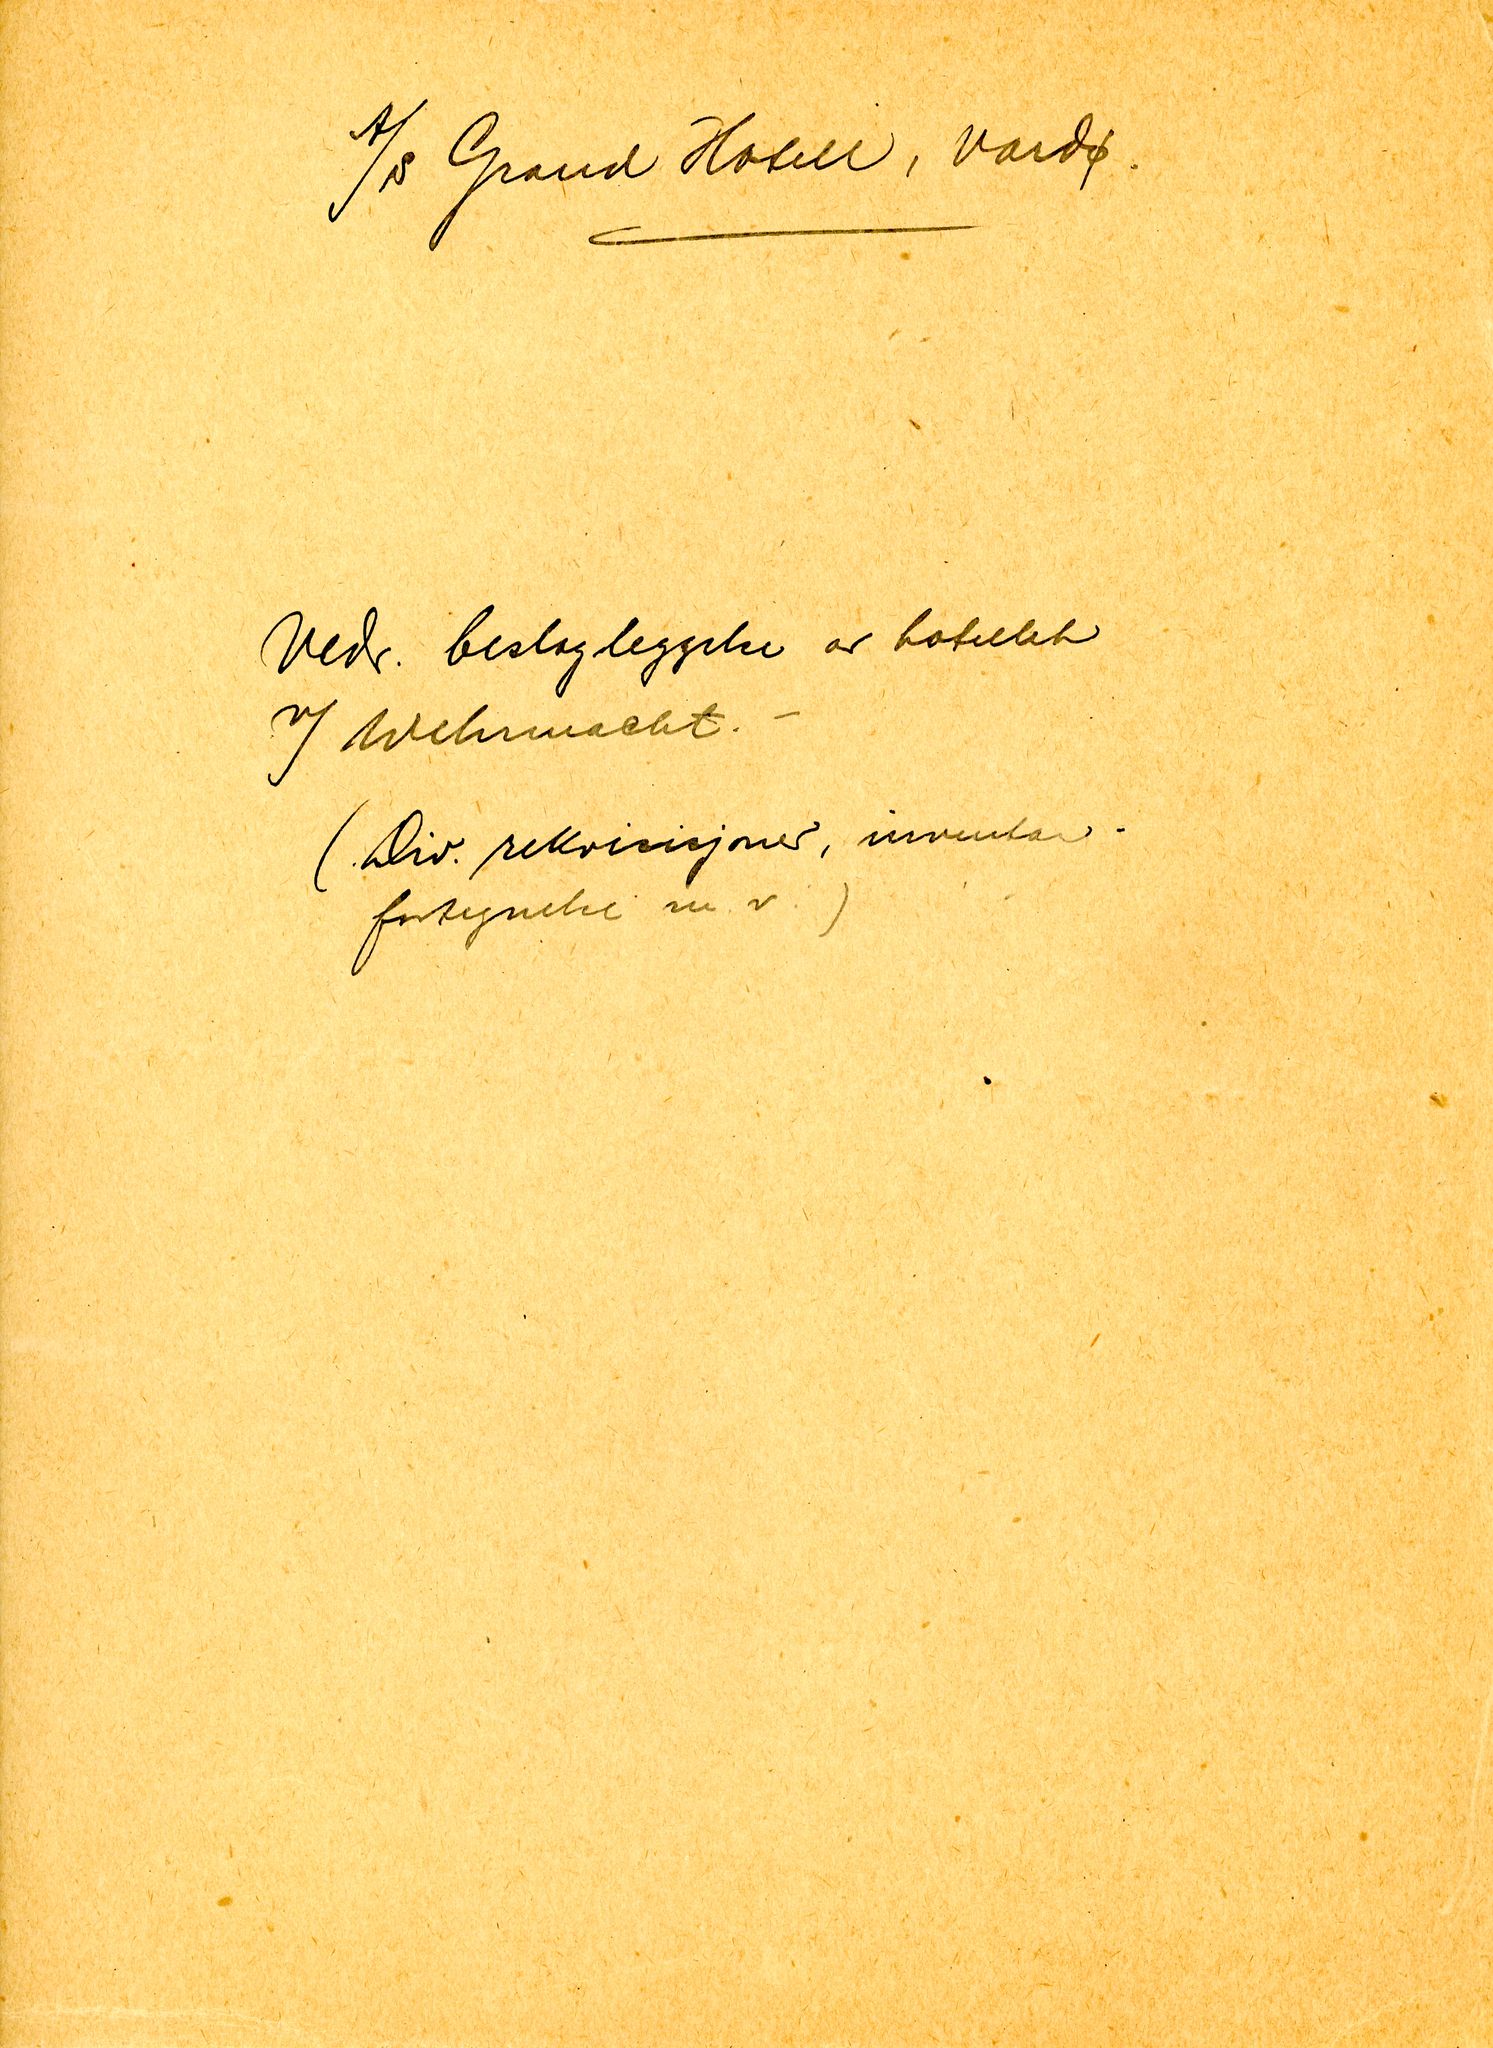 A/S Grand Hotell, Vardø.
Vedr. beslagleggelse av hotellet
v/ Wehrmacht. –
(Div. rekvisisjoner, inventar-
fortegnelse m. v.)